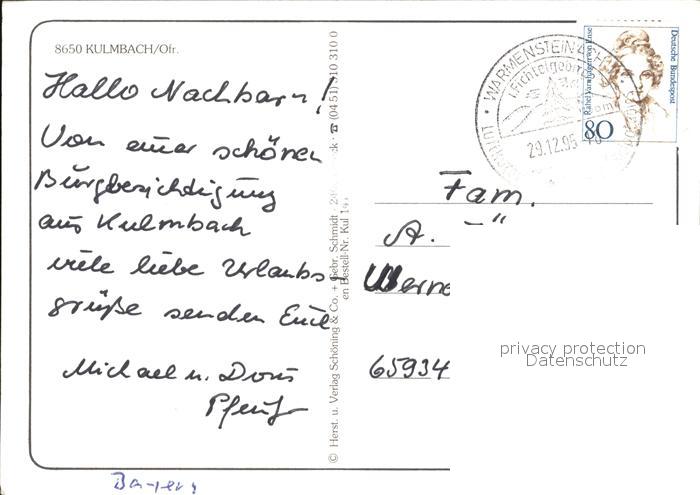 8650 KULMBACH/Ofr.
Hallo Nachbarn!
Von einer schönen
Burgbesichtigung
aus Kulmbach
viele liebe Urlaubs-
grüße senden Euch
Michael u. Doris
Bayern
© Herst. u. Verlag Schöning & Co. + Gebr. Schmidt
(04 51) 310 310 0
en Bestell-Nr. Kul
WARMENSTEINACH
i. Fichtelgebirge
29.12.95
Deutsche Bundespost
Rahel Varnhagen von Ense
80
Fam.
A.
Werne
65934
privacy protection
Datenschutz